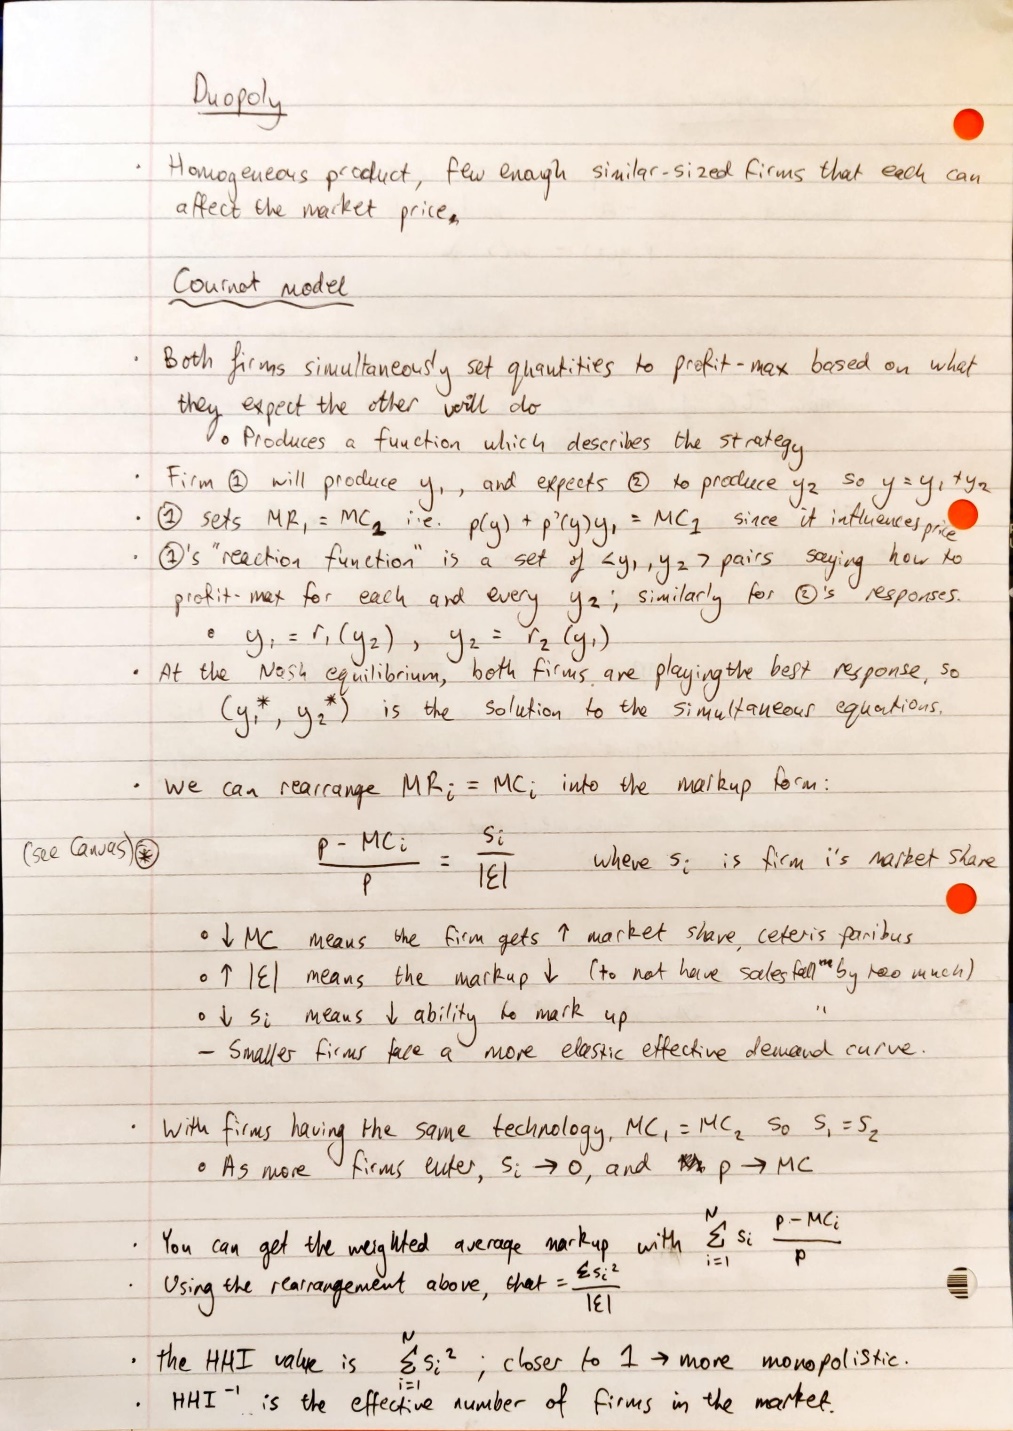 Duopoly
· Homogeneous product, few enough similar-sized firms that each can
affect the market price.
Cournot model
· Both firms simultaneously set quantities to profit-max based on what
they expect the other will do
∘ Produces a function which describes the strategy
· Firm ① will produce y₁, and expects ② to produce y₂ so y = y₁ + y₂
· ① sets MR₁ = MC₁ i.e. p(y) + p'(y)y₁ = MC₁ since it influences price
· ①'s "reaction function" is a set of <y₁, y₂> pairs saying how to
profit-max for each and every y₂; similarly for ②'s responses.
∘ y₁ = r₁(y₂), y₂ = r₂(y₁)
· At the Nash equilibrium, both firms are playing the best response, so
(y₁*, y₂*) is the solution to the simultaneous equations.
· We can rearrange MRᵢ = MCᵢ into the markup form:
(see Canvas) ⊛ (p - MCᵢ)/p = sᵢ/|ε| where sᵢ is firm i's market share
∘ ↓ MC means the firm gets ↑ market share, ceteris paribus
∘ ↑ |ε| means the markup ↓ (to not have sales fall by too much)
∘ ↓ sᵢ means ↓ ability to mark up "
– Smaller firms face a more elastic effective demand curve.
· With firms having the same technology, MC₁ = MC₂ so s₁ = s₂
∘ As more firms enter, sᵢ → 0, and p → MC
· You can get the weighted average markup with Σᵢ₌₁ᴺ sᵢ (p - MCᵢ)/p
· Using the rearrangement above, that = Σsᵢ²/|ε|
· the HHI value is Σᵢ₌₁ᴺ sᵢ² ; closer to 1 → more monopolistic.
· HHI⁻¹ is the effective number of firms in the market.